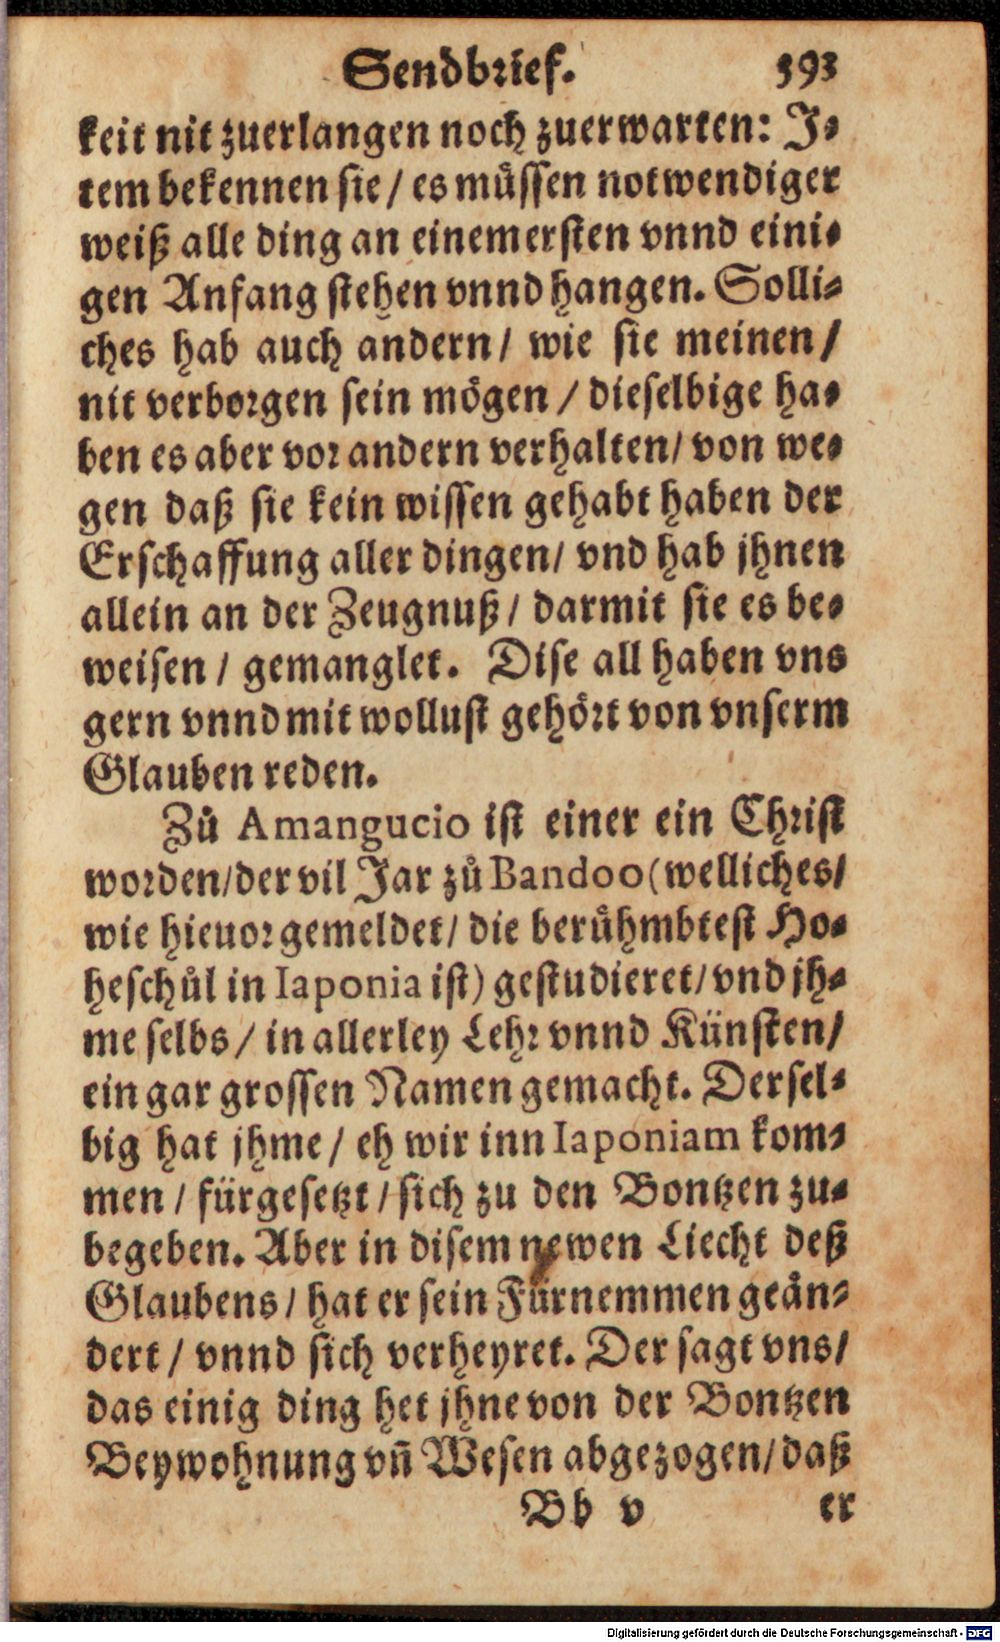 Sendbrief. 393
keit nit zuerlangen noch zuerwarten: J-
tem bekennen sie / es müssen notwendiger
weiß alle ding an einem ersten vnnd eini-
gen Anfang stehen vnnd hangen. Solli-
ches hab auch andern / wie sie meinen /
nit verborgen sein mögen / dieselbige ha-
ben es aber vor andern verhalten / von we-
gen daß sie kein wissen gehabt haben der
Erschaffung aller dingen / vnd hab jhnen
allein an der Zeugnuß / darmit sie es be-
weisen / gemanglet. Dise all haben vns
gern vnnd mit wollust gehört von vnserm
Glauben reden.
Zů Amangucio ist einer ein Christ
worden / der vil Jar zů Bandoo (welliches /
wie hieuor gemeldet / die berühmbtest Ho-
heschůl in Iaponia ist) gestudieret / vnd jh-
me selbs / in allerley Lehr vnnd Künsten /
ein gar grossen Namen gemacht. Dersel-
big hat jhme / eh wir inn Iaponiam kom-
men / fürgesetzt / sich zu den Bontzen zu-
begeben. Aber in disem newen Liecht deß
Glaubens / hat er sein Fürnemmen geän-
dert / vnnd sich verheyret. Der sagt vns /
das einig ding het jhne von der Bontzen
Beywohnung vñ Wesen abgezogen / daß
Bb v er
Digitalisierung gefördert durch die Deutsche Forschungsgemeinschaft - DFG